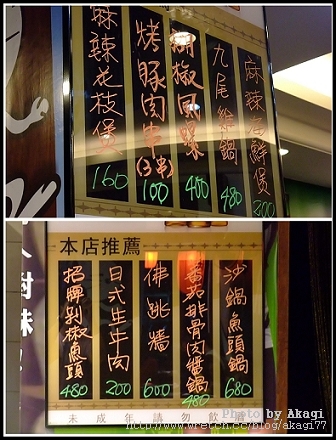 麻辣花枝煲
160
烤豚肉串
(3串)
100
胡椒鳳螺
400
九尾雞鍋
480
麻辣海鮮煲
200
本店推薦
招牌剁椒魚頭
480
日式生牛肉
200
佛跳牆
600
番茄排骨肉蟹鍋
480
沙鍋魚頭鍋
680
未成年請勿飲酒
Photo by Akagi
http://www.wretch.cc/blog/akagi77